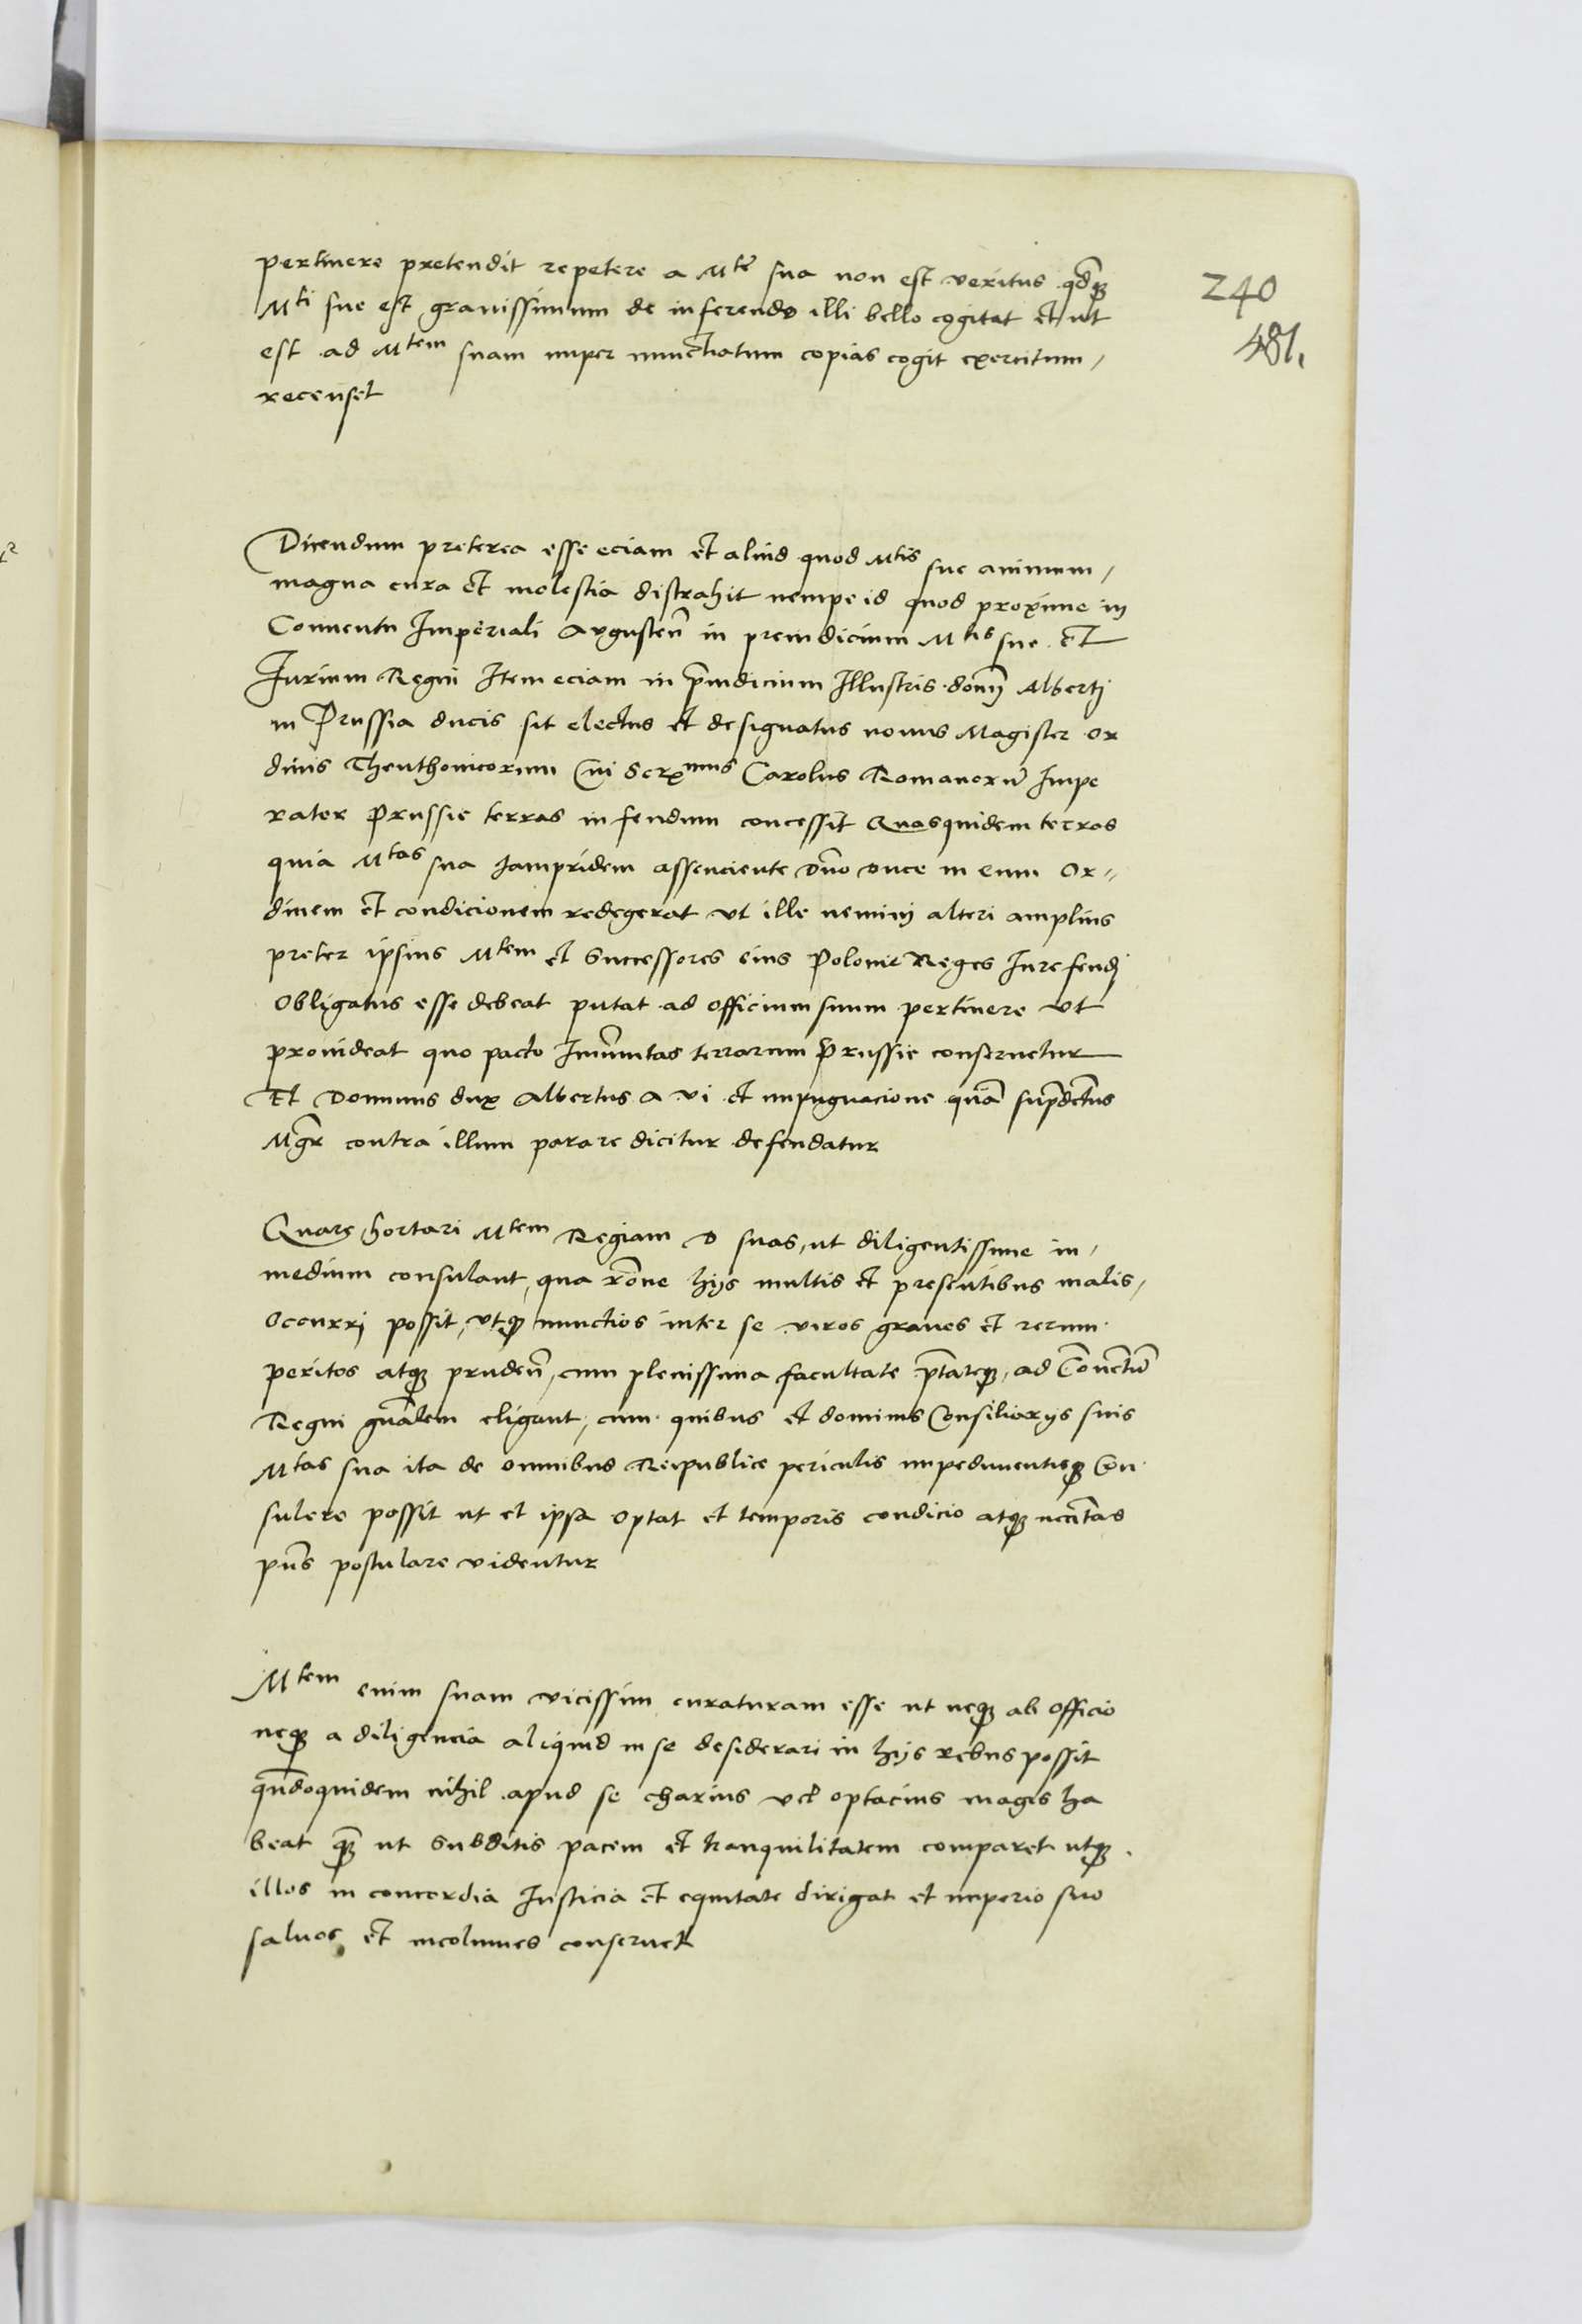 pertinere pretendit repetere a Mte sua non est veritus qdq
Mti sue est grauissimum de inferendo illi bello cogitat et ut
est ad Mtem suam nuper nunctiatum copias cogit exercitum
recenset
240
481.
Dicendum preterea esse eciam et aliud quod Mtis sue animum
magna cura et molestia distrahit nempe id quod proxime in
Conuentu Imperiali Augusten in preiudicium Mtis sue et
Iurium Regni Item eciam in priudicium Illustris domj Albertj
in Prussia ducis sit electus et designatus nouus Magister Or
dinis Theuthonicorum Cui Serxmus Carolus Romanorum Impe
rator Prussie terras in feudum concessit Quasquidem terras
quia Mtas sua iampridem assenciente dno duce in eum Or=
dinem et condicionem redegerat vt ille neminj alteri amplius
preter ipsius Mtem et Successores eius Polonie Reges Iure feudj
Obligatus esse debeat putat ad officium suum pertinere vt
prouideat quo pacto Immutas terrarum Prussie conseruetur
Et Dominus dux Albertus a vi et impugnacione qua supdctus
Mgr contra illum parare dicitur defendatur
Quare hortari Mtem Regiam D suas, ut diligentissime in
medium consulant, qua rone hijs multis et presentibus malis
Occurrj possit, vtq nunctios inter se viros graues et rerum
peritos atq pruden, cum plenissima facultate ptateq, ad Conuctu
Regni gnalem eligant, cum quibus et dominis Consiliarijs suis
Mtas sua ita de omnibus Reipublice periculis impedimentisq Con
sulere possit ut et ipsa optat et temporis condicio atq nccitas
pns postulare videntur
Mtem enim suam vicissim curaturam esse ut neq ab officio
neq a diligencia aliquid in se desiderari in hijs rebus possit
quandoquidem nihil apud se charius vel optacius magis ha
beat q ut Subditis pacem et tranquilitatem comparet utq
illos in concordia Iusticia et equitate dirigat et imperio suo
saluos et incolumes conseruet